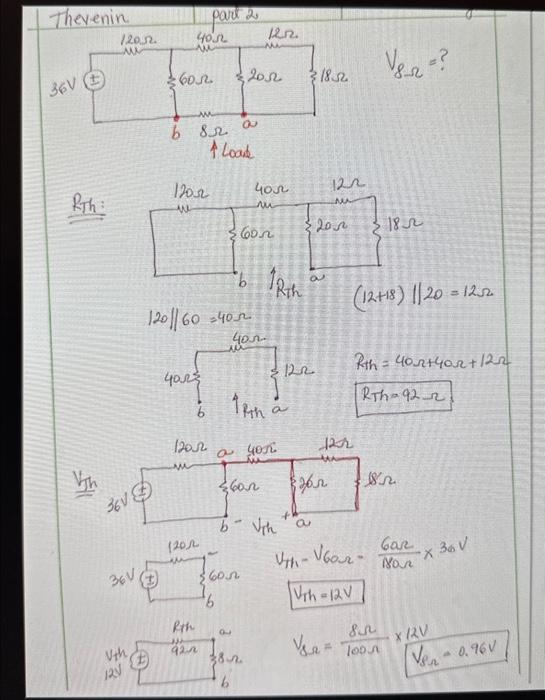 Thevenin part 2
120Ω 40Ω 12Ω
36V 60Ω 20Ω 18Ω V8Ω=?
b 8Ω a
↑ Load
RTh:
120Ω 40Ω 12Ω
60Ω 20Ω 18Ω
b ↑RTh a
(12+18) || 20 = 12Ω
120 || 60 = 40Ω
40Ω
40Ω 12Ω
b ↑RTh a
Rth = 40Ω+40Ω+12Ω
RTh = 92Ω
VTh
120Ω a 40Ω 12Ω
36V 60Ω 18Ω
b - VTh + a
120Ω -
36V 60Ω
b
VTh = V60Ω = 60Ω/180Ω × 36V
VTh = 12V
RTh
92Ω a
VTh 12V 8Ω
b
V8Ω = 8Ω/100Ω × 12V
V8Ω = 0.96V